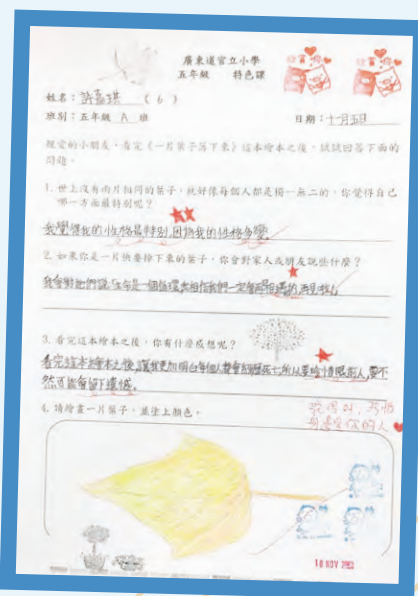 廣東道官立小學
五年級 特色課
欣賞你 欣賞你
姓名：許嘉琪 （6）
班別：五年級 A 班 日期：十一月五日
親愛的小朋友，看完《一片葉子落下來》這本繪本之後，試試回答下面的
問題。
1. 世上沒有兩片相同的葉子，就好像每個人都是獨一無二的，你覺得自己
哪一方面最特別呢？
我覺得我的性格最特別，因為我的性格多變。
2. 如果你是一片快要掉下來的葉子，你會對家人或朋友說些什麼？
我會對他們說「生命是一個循環，我相信我們一定會再相遇的，再見啦！」
3. 看完這本繪本之後，你有什麼感想呢？
看完這本繪本之後，讓我更加明白每個人都會經歷死亡，所以要珍惜眼前人，要不
然可能會留下遺憾。
4. 請繪畫一片葉子，並塗上顏色。
你的人
10 NOV